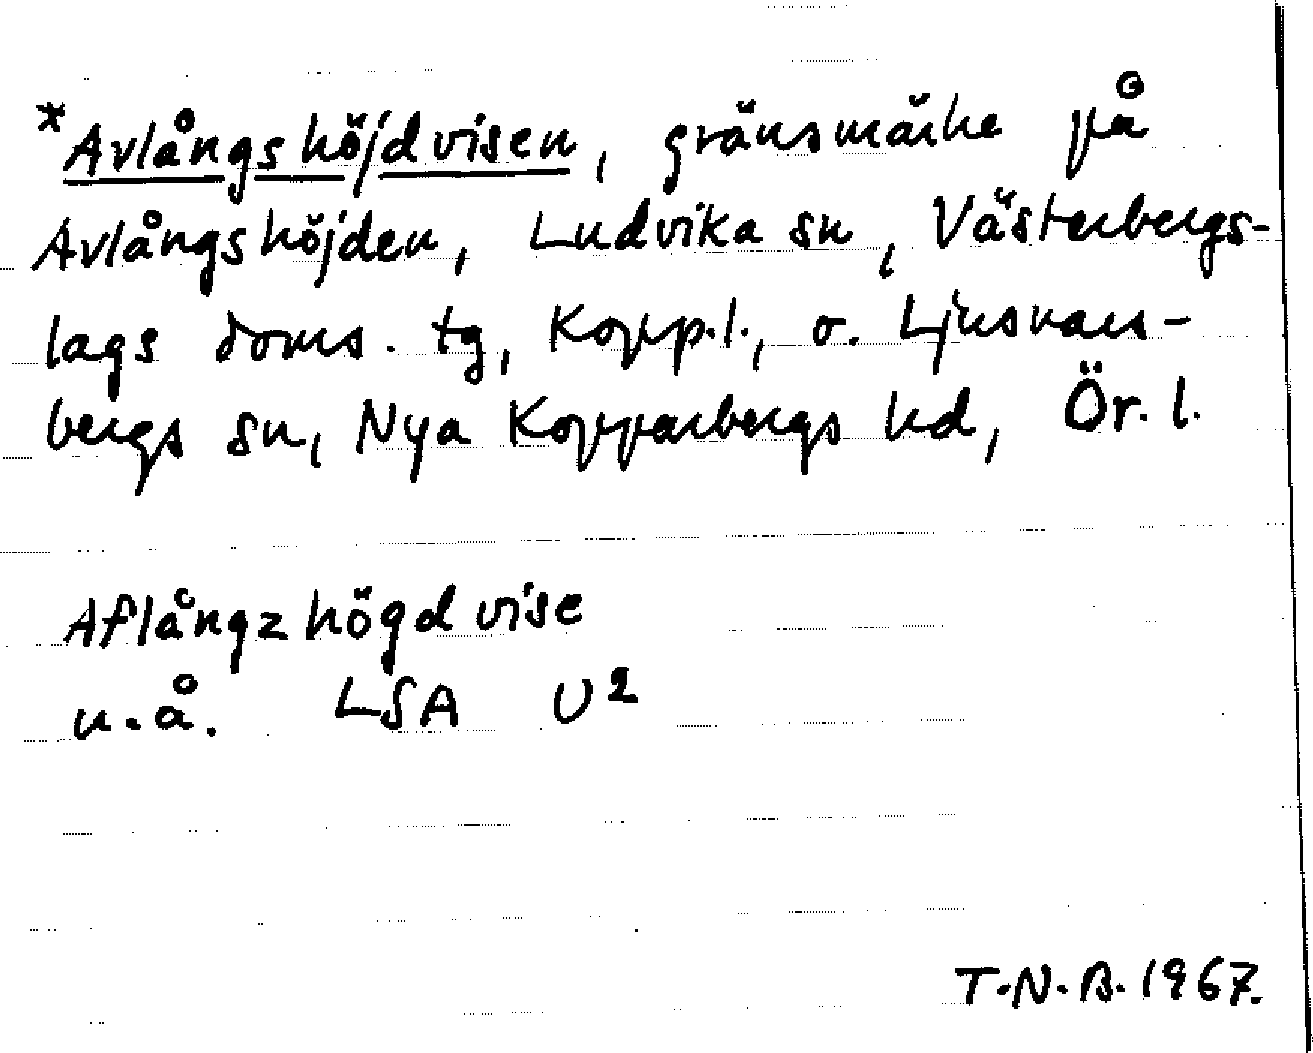 *Avlångshöjdvisen, gränsmärke på
Avlångshöjden, Ludvika sn, Västerbergs-
lags doms. tg, Kopp.l., o. Ljusnars-
bergs sn, Nya Kopparbergs hd, Ör. l.
Aflångzhögd vise
u.å. LSA U²
T.N.B. 1967.